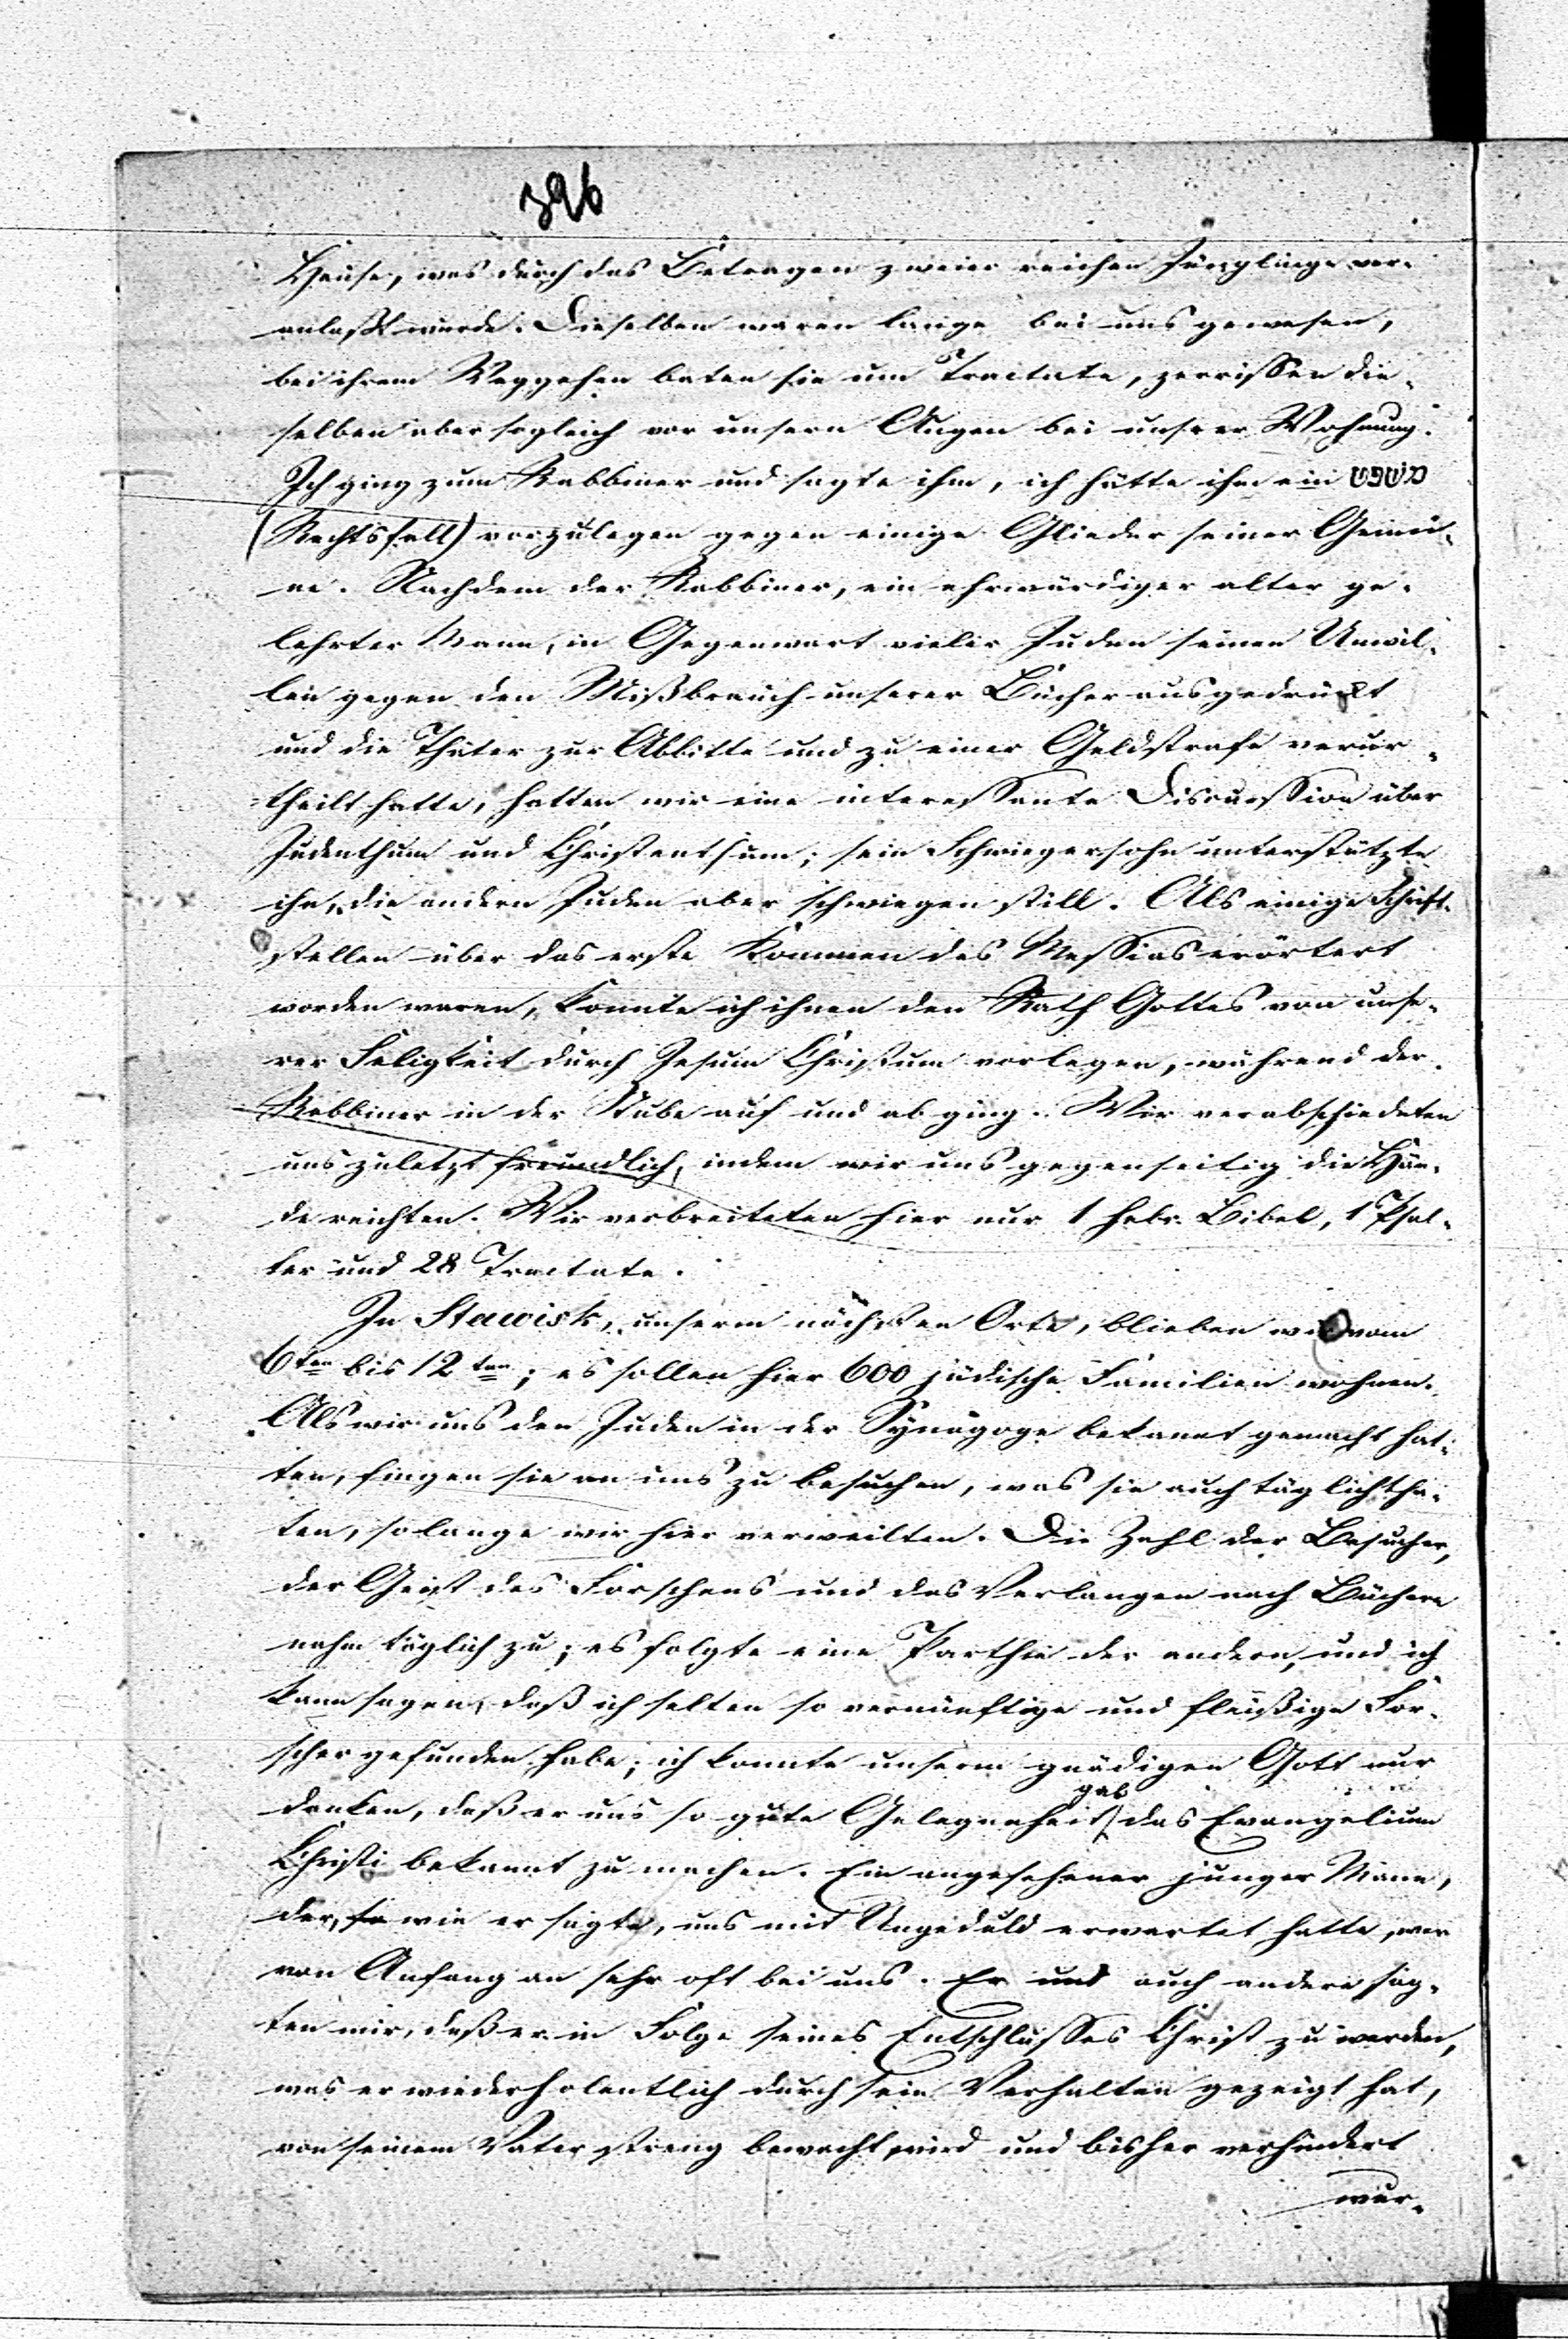 396
Hause, was durch das Betragen zweier reichen Jünglinge ver-
anlaßt wurde. Dieselben waren lange bei uns gewesen,
bei ihrem Weggehen baten sie um Tractate, zerrissen die-
selben aber sogleich vor unsern Augen bei unsrer Wohnung.
Ich ging zum Rabbiner und sagte ihm, ich hätte ihm ein משפט
(Rechtsfall) vorzulegen gegen einige Glieder seiner Gemei-
ne. Nachdem der Rabbiner, ein ehrwürdiger alter ge-
lehrter Mann, in Gegenwart vieler Juden seinen Unwil-
len gegen den Mißbrauch unserer Bücher ausgedrückt
und die Thäter zur Abbitte und zu einer Geldstrafe verur-
theilt hatte, hatten wir eine interessante Discussion über
Judenthum und Christenthum; sein Schwiegersohn unterstützte
ihn, die andern Juden aber schwiegen still. Als einige Schrift-
stellen über das erste Kommen des Messias erörtert
worden waren, konnte ich ihnen den Rath Gottes von unse-
rer Seligkeit durch Jesum Christum vorlegen, während der
Rabbiner in der Stube auf und ab ging. Wir verabschiedeten
uns zuletzt freundlich, indem wir uns gegenseitig die Hän-
de reichten. Wir verbreiteten hier nur 1 hebr. Bibel, 1 Psal-
ter und 28 Tractate.
In Stawisk, unserm nächsten Orte, blieben wir vom
6ten bis 12ten; es sollen hier 600 jüdische Familien wohnen.
Als wir uns den Juden in der Synagoge bekannt gemacht hat-
ten, fingen sie an uns zu besuchen, was sie auch täglich tha-
ten, so lange wir hier verweilten. Die Zahl der Besucher,
der Geist des Forschens und das Verlangen nach Büchern
nahm täglich zu; es folgte eine Parthie der andern, und ich
kann sagen, daß ich selten so vernünftige und fleißige For-
scher gefunden habe; ich konnte unserm gnädigen Gott nur
danken, daß er uns so gute Gelegenheit gab das Evangelium
Christi bekannt zu machen. Ein angesehener junger Mann,
der, so wie er sagte, uns mit Ungeduld erwartet hatte, war
von Anfang an sehr oft bei uns. Er und auch andere sag-
ten mir, daß er in Folge seines Entschlusses Christ zu werden,
was er wiederholentlich durch sein Verhalten gezeigt hat,
von seinem Vater streng bewacht wird und bisher verhindert
wur-